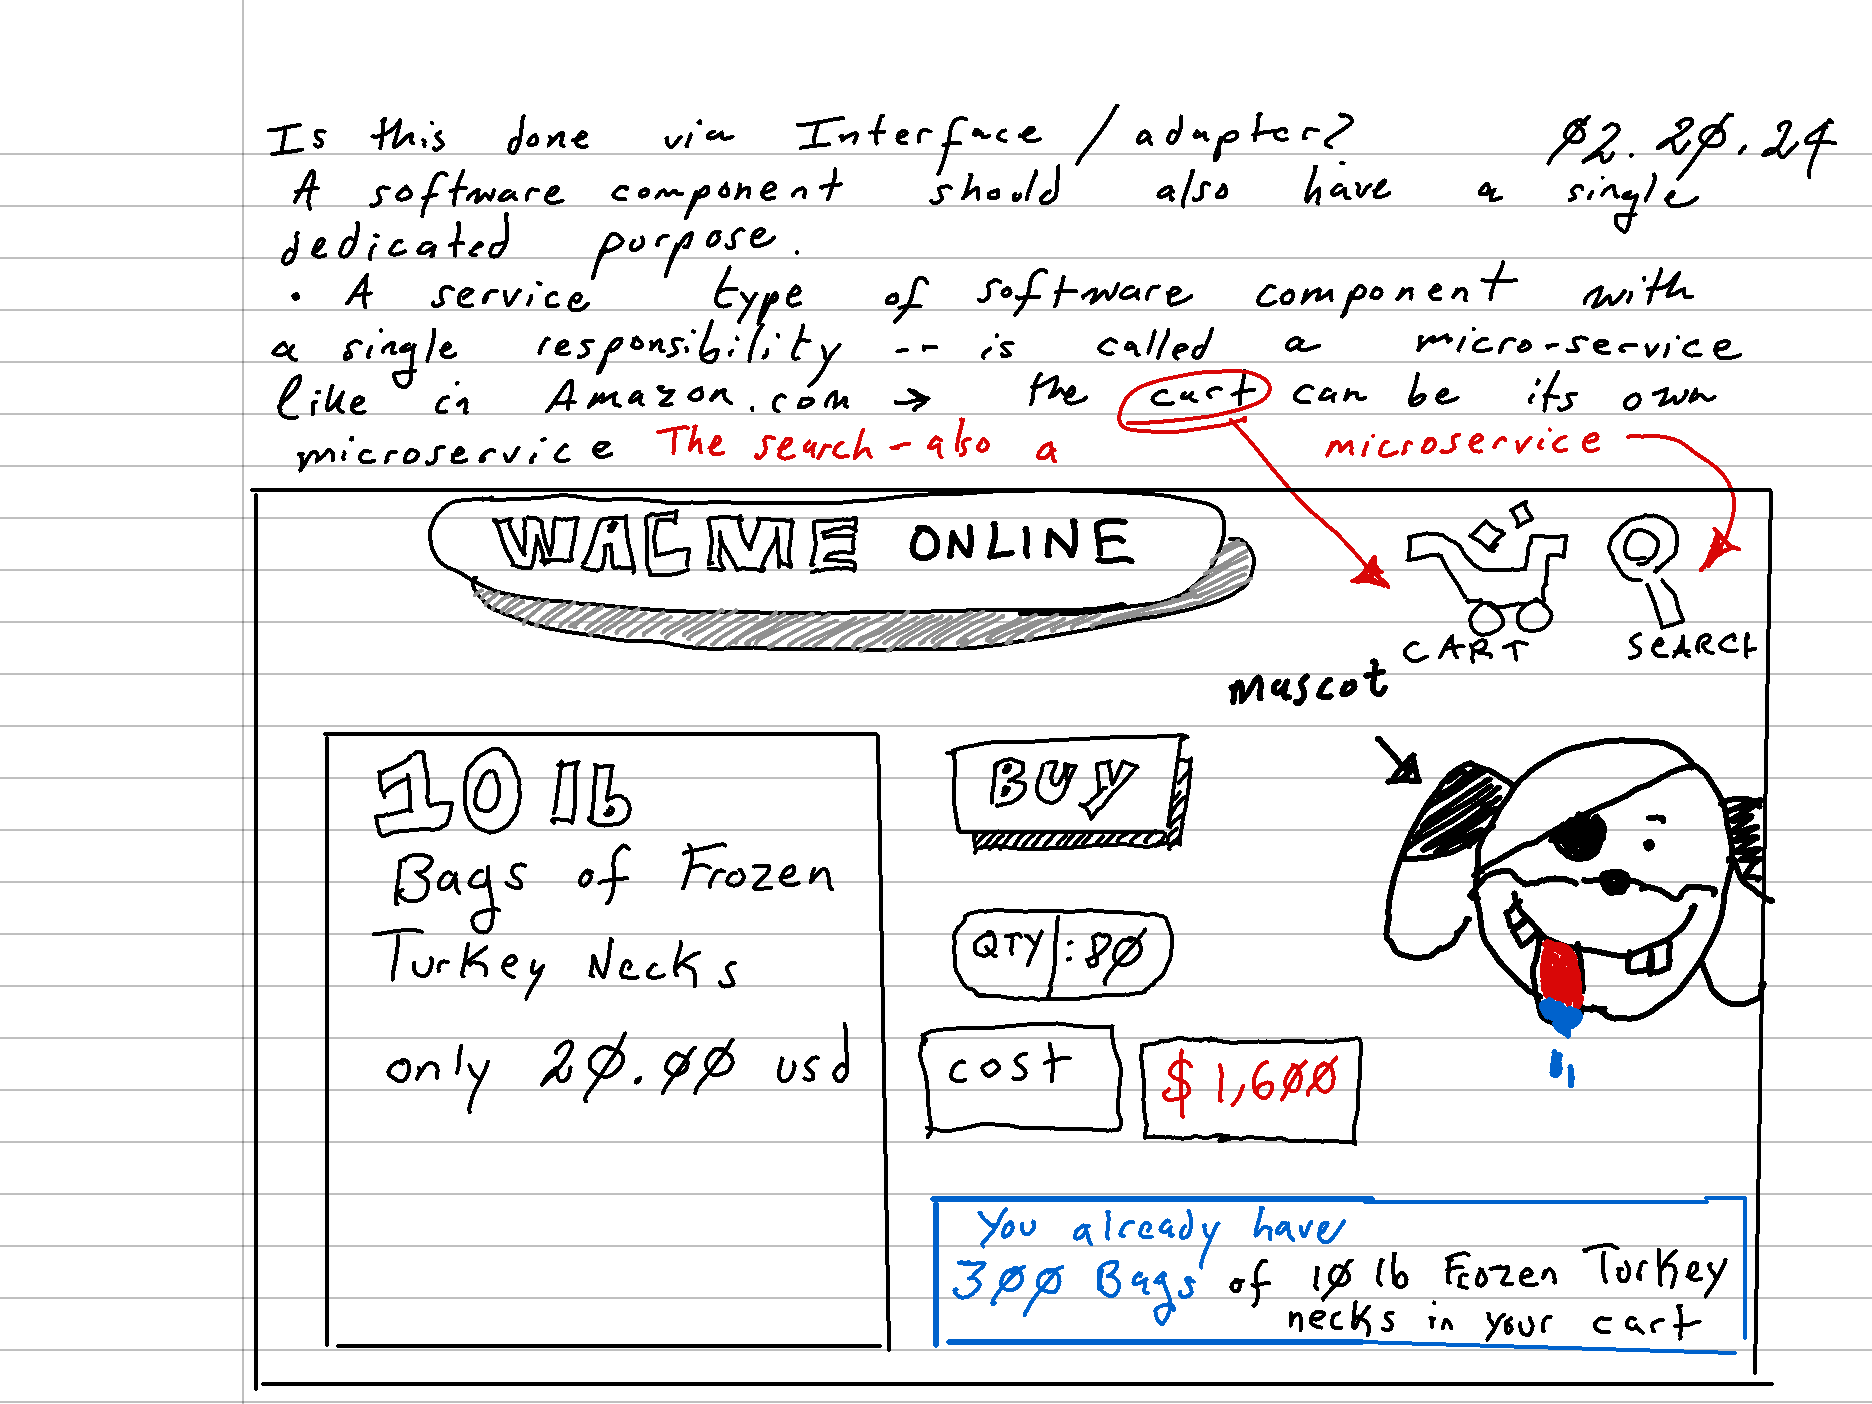 Is this done via Interface / adapter? 02.20.24
A software component should also have a single
dedicated purpose.
• A service type of software component with
a single responsibility -- is called a micro-service
like in Amazon.com → the cart can be its own
microservice The search - also a microservice
WACME ONLINE
CART
SEARCH
mascot
10 lb
Bags of Frozen
Turkey Necks
only 20.00 usd
BUY
QTY : 80
cost $1,600
You already have
300 Bags of 10 lb Frozen Turkey
necks in your cart